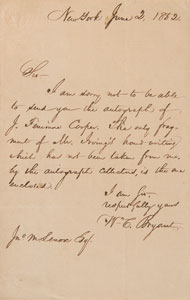 New York June 2, 1852
Sir
I am sorry not to be able
to send you the autograph of
J. Fenimore Cooper. The only frag-
ment of Mr. Irving's hand-writing
which has not been taken from me,
by the autograph collectors, is the one
enclosed.
I am Sir
respectfully yours
W. C. Bryant
Jno Esq.